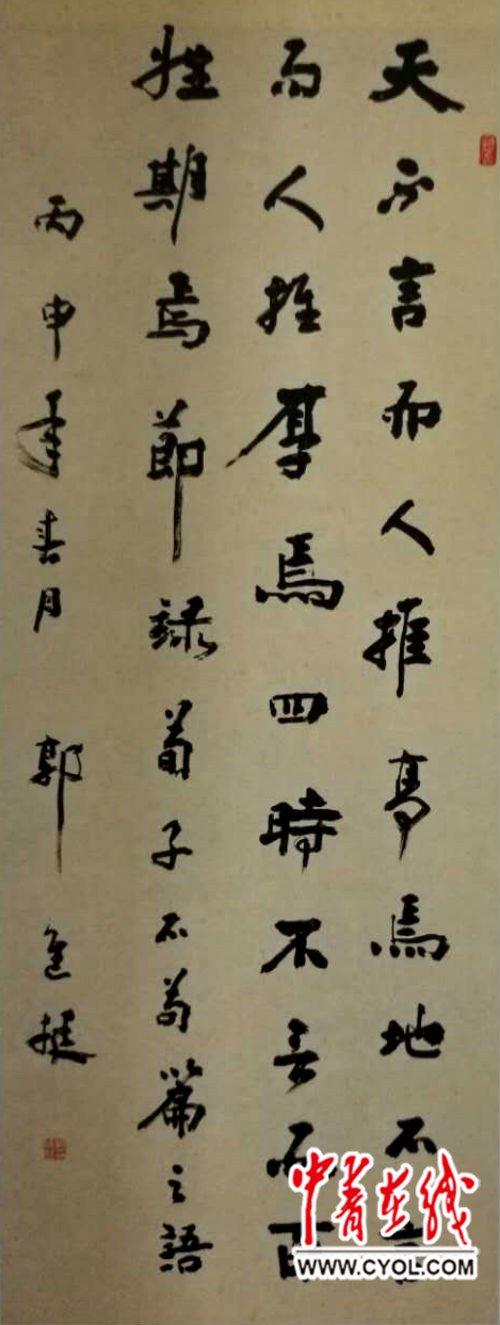 天不言而人推高焉地不言
而人推厚焉四時不言而百
姓期焉節録荀子不苟篇之語
丙申年春月 郭挺
中青在线
WWW.CYOL.COM